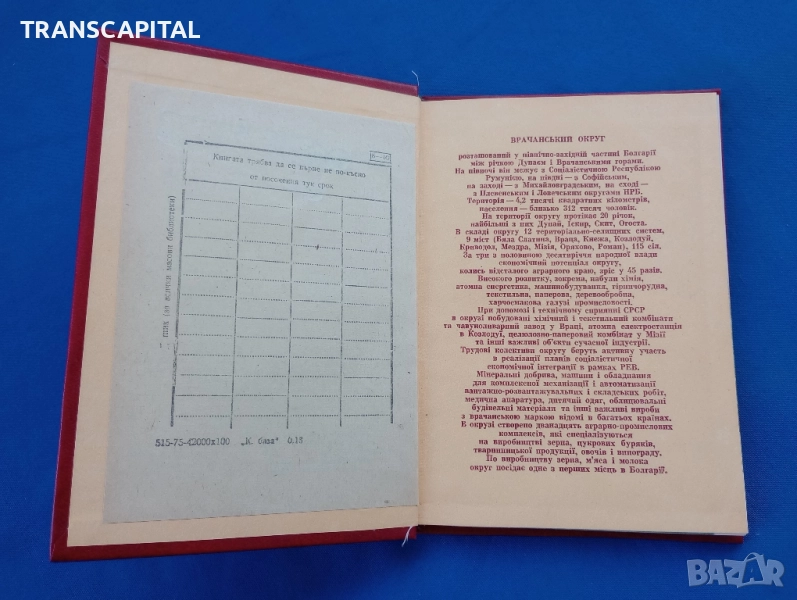 TRANSCAPITAL
Книгата трябва да се върне не по-късно
от посочения тук срок
515-75-42000х100 „К. база“ 0.18
ВРАЧАНСЬКИЙ ОКРУГ
розташований у північно-західній частині Болгарії
між річкою Дунаєм і Врачанськими горами.
На півночі він межує з Соціалістичною Республікою
Румунією, на півдні — з Софійським,
на заході — з Михайловградським, на сході —
з Плевенським і Ловечським округами НРБ.
Територія — 4,2 тисячі квадратних кілометрів,
населення — близько 312 тисяч чоловік.
На території округу протікає 20 річок,
найбільші з них Дунай, Іскир, Скит, Огоста.
В складі округу 12 територіально-селищних систем,
9 міст (Бяла Слатина, Враца, Кнежа, Козлодуй,
Криводол, Мездра, Мізія, Оряхово, Роман), 115 сіл.
За три з половиною десятиріччя народної влади
економічний потенціал округу,
колись відсталого аграрного краю, зріс у 45 разів.
Високого розвитку, зокрема, набули хімія,
атомна енергетика, машинобудування, гірничорудна,
текстильна, паперова, деревообробна,
харчосмакова галузі промисловості.
При допомозі і технічному сприянні СРСР
в окрузі побудовані хімічний і текстильний комбінати
та чавуноливарний завод у Враці, атомна електростанція
в Козлодуї, целюлозно-паперовий комбінат у Мізії
та інші важливі об'єкти сучасної індустрії.
Трудові колективи округу беруть активну участь
в реалізації планів соціалістичної
економічної інтеграції в рамках РЕВ.
Мінеральні добрива, машини і обладнання
для комплексної механізації і автоматизації
вантажно-розвантажувальних і складських робіт,
медична апаратура, дитячий одяг, облицювальні
будівельні матеріали та інші важливі вироби
з врачанською маркою відомі в багатьох країнах.
В окрузі створено дванадцять аграрно-промислових
комплексів, які спеціалізуються
на виробництві зерна, цукрових буряків,
тваринницької продукції, овочів і винограду.
По виробництву зерна, м'яса і молока
округ посідає одне з перших місць в Болгарії.
BAZAR